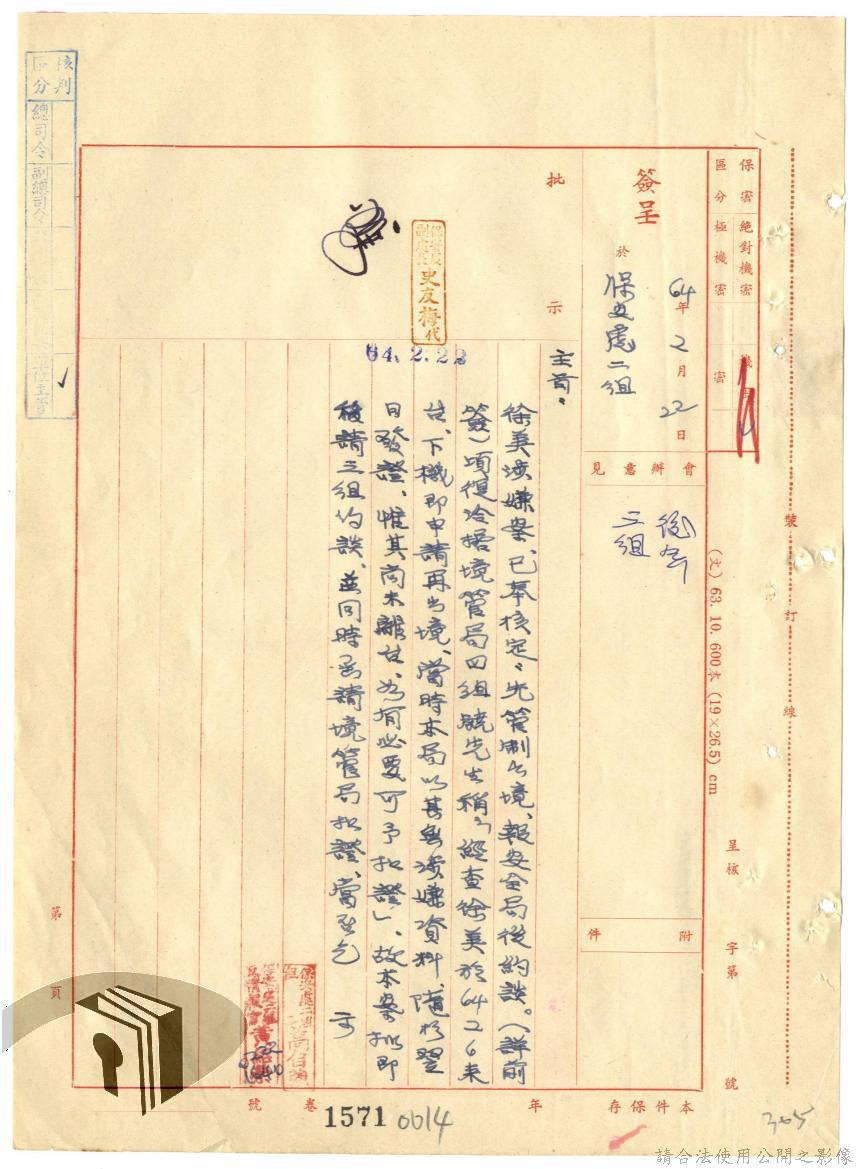 保密區分
絕對機密
極機密
機密
密
簽呈
64年2月22日
於保安處二組
會辦意見
後会
三組
附件
批示
保安處副處長史友梅代
64.2.22
主旨：
徐美涉嫌案、已奉核定：先管制出境、報安全局後約談。（詳前
簽）頃復洽據境管局四組饒先生稱：「經查徐美於6426來
台、下機即申請再出境、當時本局以其無涉嫌資料、隨於翌
日發證、惟其尚未離台、如有必要可予扣證」、故本案擬即
後請三組約談、並同時函請境管局扣證、當否乞 示
0222
1640
核判區分
總司令
副總司令
單位主管
第 頁
裝訂線
(文) 63. 10. 600本 (19×26.5) cm
呈核 字第 號
本件保存 年 卷 號
1571 0014
305
請合法使用公開之影像